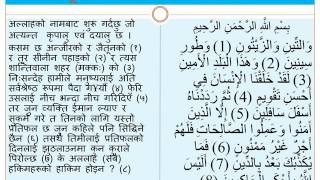 अल्लाहको नामबाट शुरू गर्दछु जो
अत्यन्त कृपालु एवं दयालु छ ।
कसम छ अन्जीरको र जैतूनको (१)
र तूर सीनीन पहाडको (२) र त्यस
शान्तिवाला शहर (मक्कः) को (३)
निःसन्देह हामीले मनुष्यलाई अति
सर्वश्रेष्ठ रूपमा पैदा गर्यौं (४) फेरि
उसलाई नीच भन्दा नीच गरिदिएँ (५)
तर जुन व्यक्ति ईमान ल्याए र
सुकर्म गरे त तिनको लागि यस्तो
प्रतिफल छ जुन कहिले पनि सिद्दिने
छैन (६) तसर्थ तिमीलाई प्रतिफलको
दिनलाई झुठलाउनमा कुन कुराले
पिरोल्छ (७) के अल्लाह (सबै)
हाकिमहरूको हाकिम होइन ? (८)
بِسْمِ اللَّهِ الرَّحْمَنِ الرَّحِيمِ
وَالتِّينِ وَالزَّيْتُونِ (1) وَطُورِ
سِينِينَ (2) وَهَذَا الْبَلَدِ الْأَمِينِ
(3) لَقَدْ خَلَقْنَا الْإِنْسَانَ فِي
أَحْسَنِ تَقْوِيمٍ (4) ثُمَّ رَدَدْنَاهُ
أَسْفَلَ سَافِلِينَ (5) إِلَّا الَّذِينَ
آمَنُوا وَعَمِلُوا الصَّالِحَاتِ فَلَهُمْ
أَجْرٌ غَيْرُ مَمْنُونٍ (6) فَمَا
يُكَذِّبُكَ بَعْدُ بِالدِّينِ (7) أَلَيْسَ